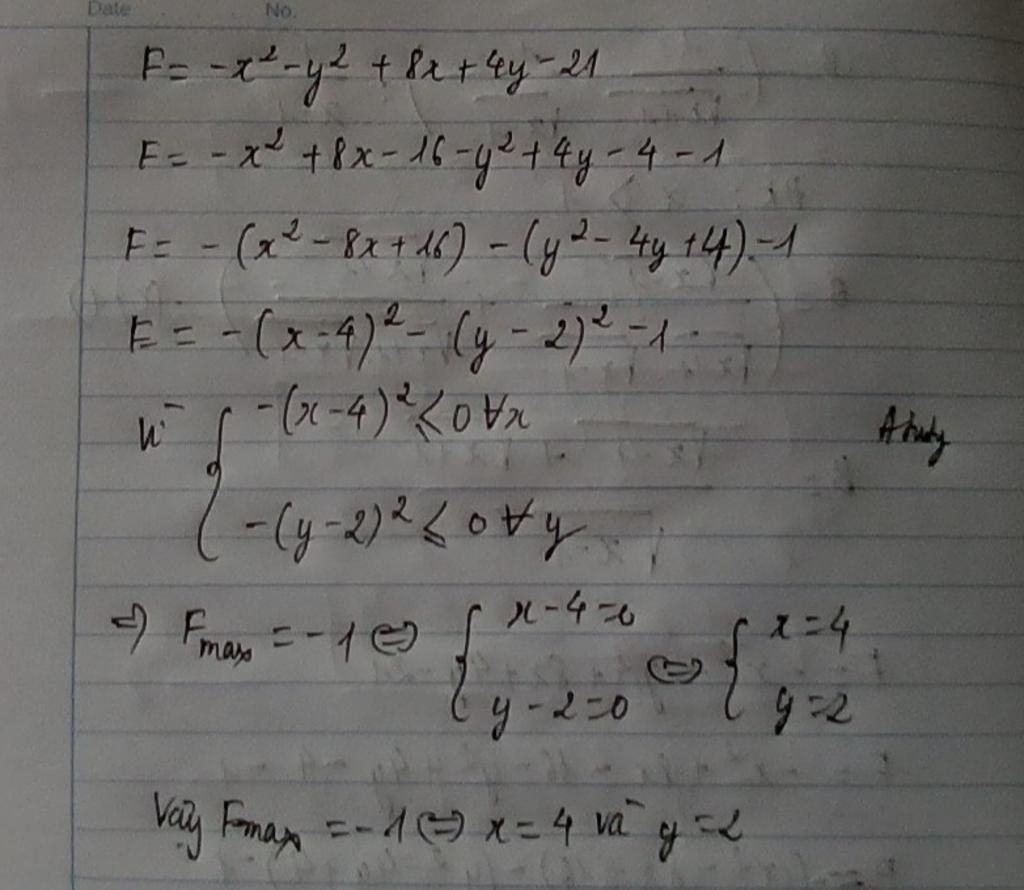 Date No.
F = -x² - y² + 8x + 4y - 21
F = -x² + 8x - 16 - y² + 4y - 4 - 1
F = - (x² - 8x + 16) - (y² - 4y + 4) - 1
F = - (x - 4)² - (y - 2)² - 1
Vì { -(x - 4)² ⩽ 0 ∀x
-(y - 2)² ⩽ 0 ∀y
=) Fmax = -1 <=> { x - 4 = 0 <=> { x = 4
y - 2 = 0 y = 2
Vậy Fmax = -1 <=> x = 4 và y = 2